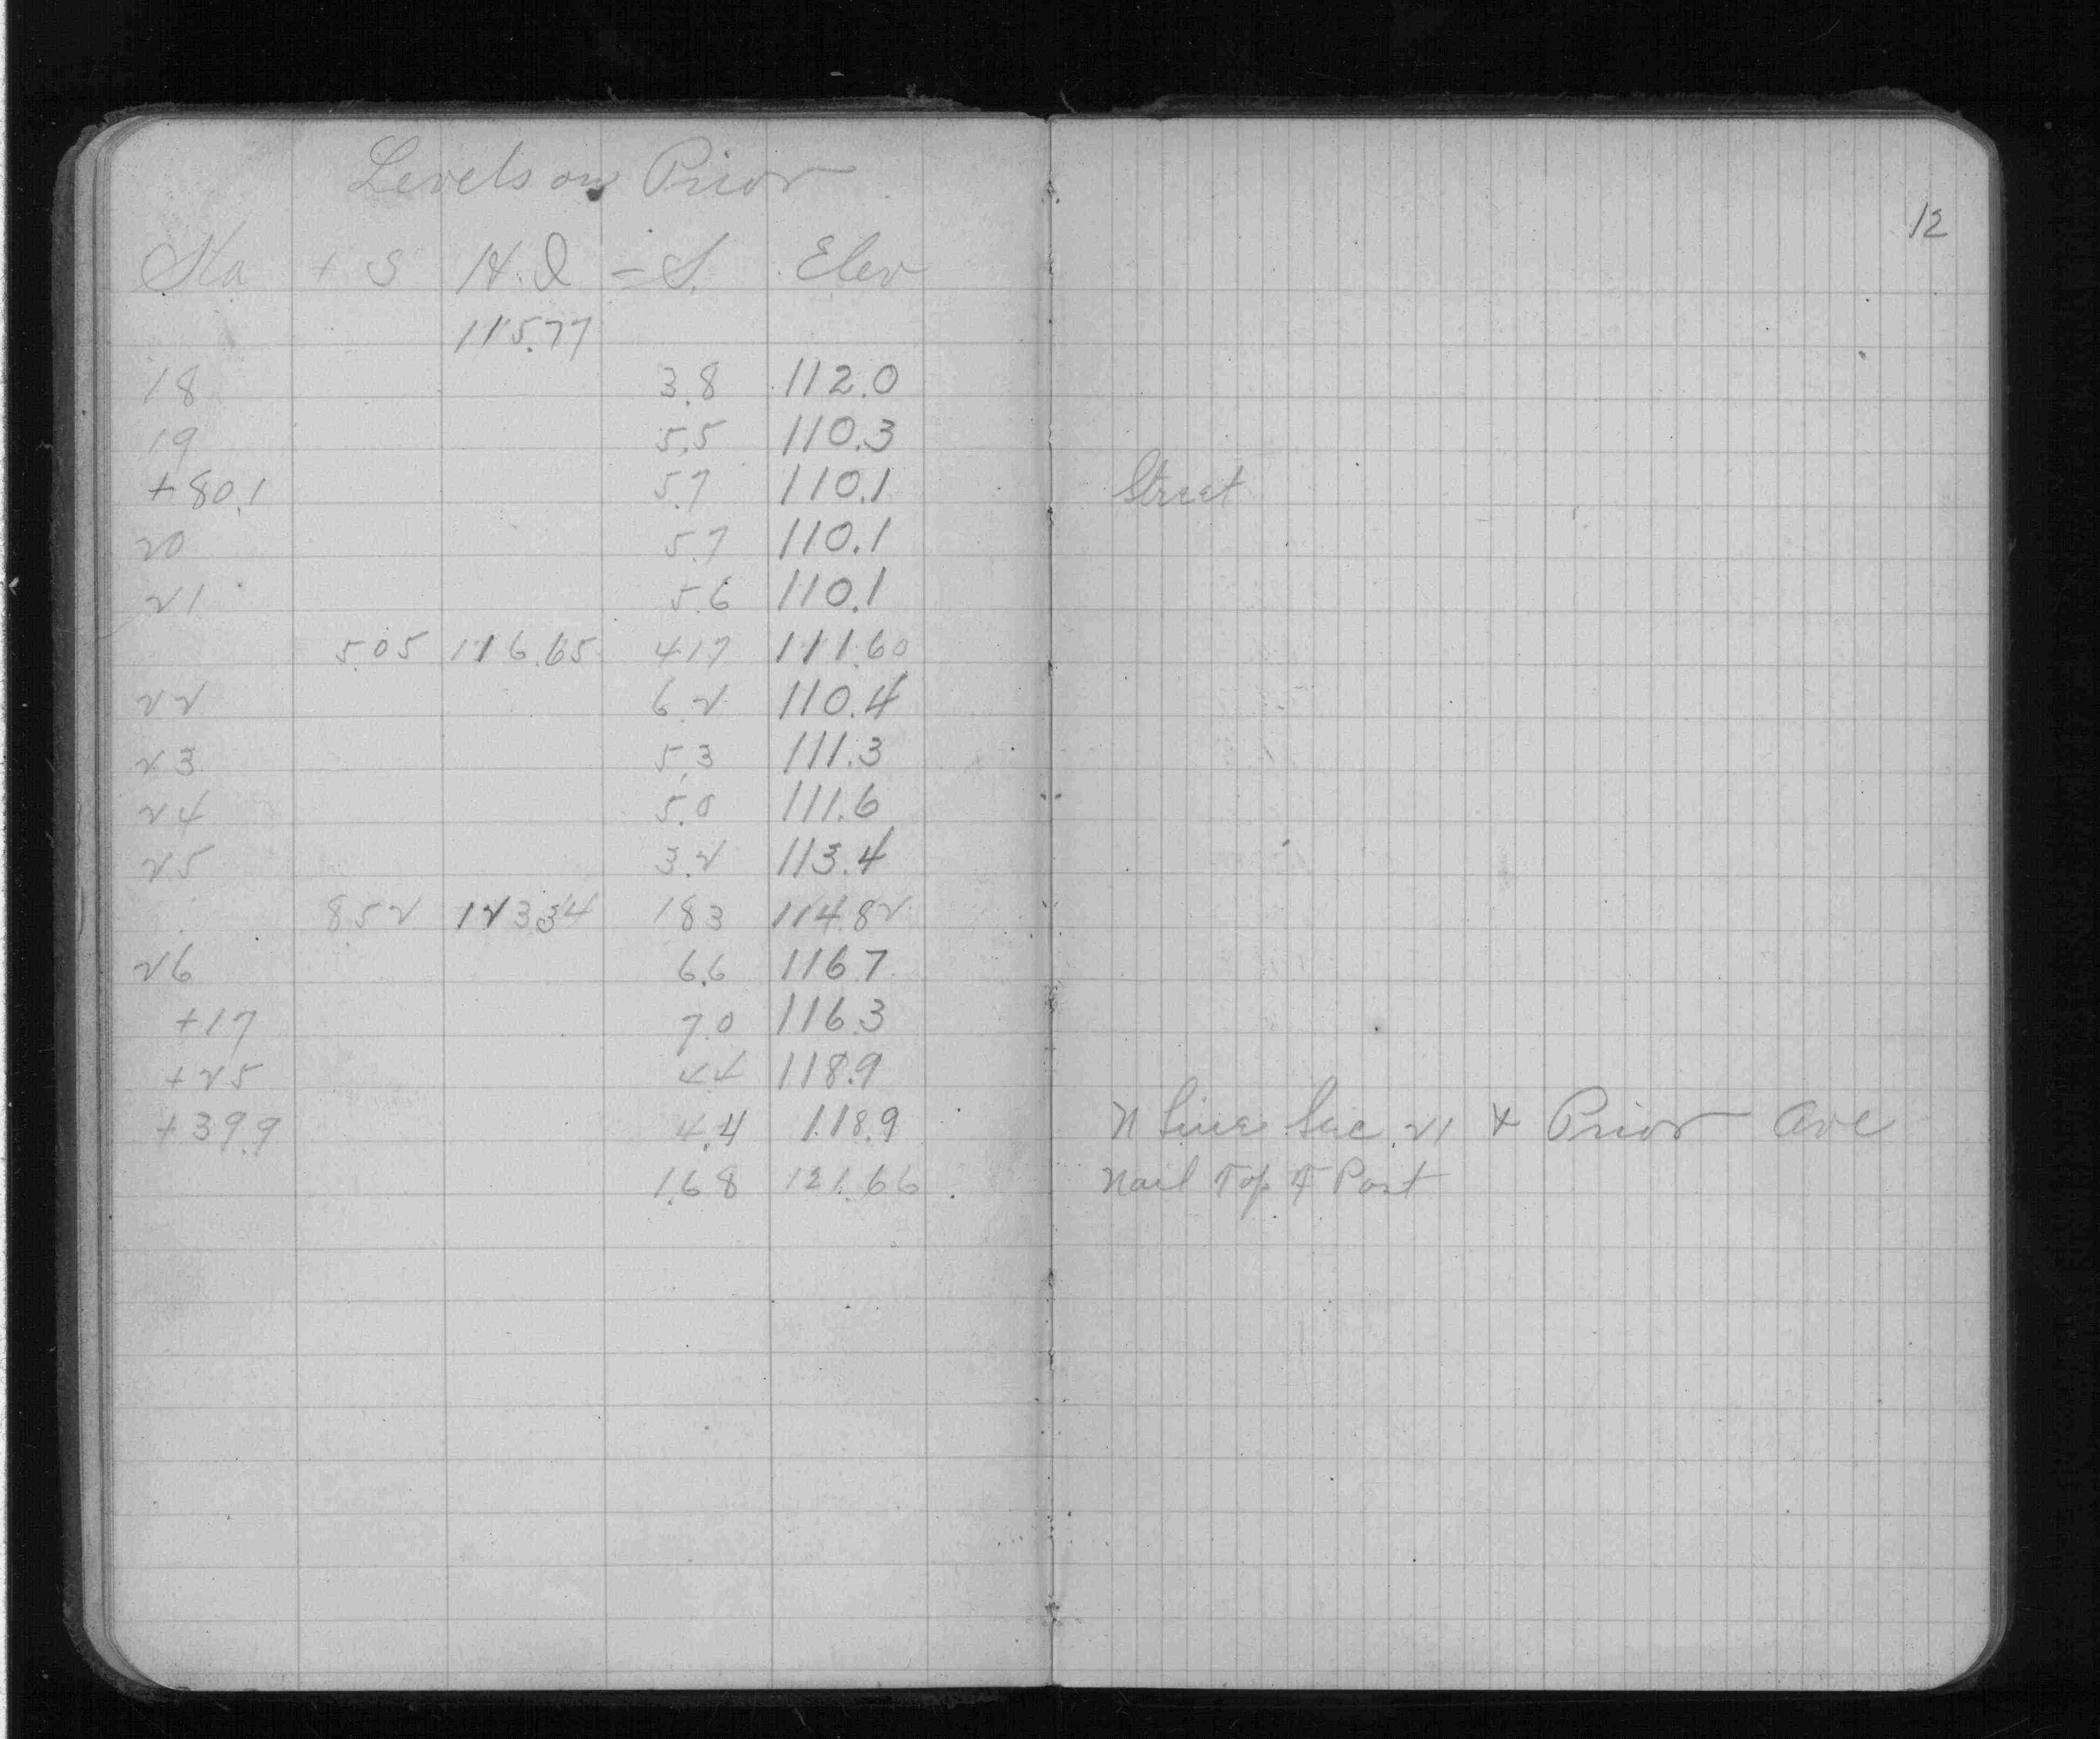 Levels on Prior
12
Sta + S H.I - S. Elev
115.77
18 3.8 112.0
19 5.5 110.3
+80.1 5.7 110.1 Street
20 5.7 110.1
21 5.6 110.1
5.05 116.65 4.17 111.60
22 6.2 110.4
23 5.3 111.3
24 5.0 111.6
25 3.2 113.4
8.52 123.34 1.83 114.82
26 6.6 116.7
+17 7.0 116.3
+25 4.4 118.9
+39.9 4.4 118.9 N Line Sec. 21 & Prior Ave
1.68 121.66 Nail Top F Post